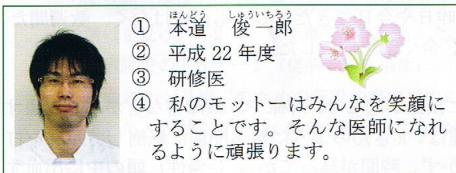 ほんどう しゅういちろう
① 本道 俊一郎
② 平成22年度
③ 研修医
④ 私のモットーはみんなを笑顔に
することです。そんな医師になれ
るように頑張ります。